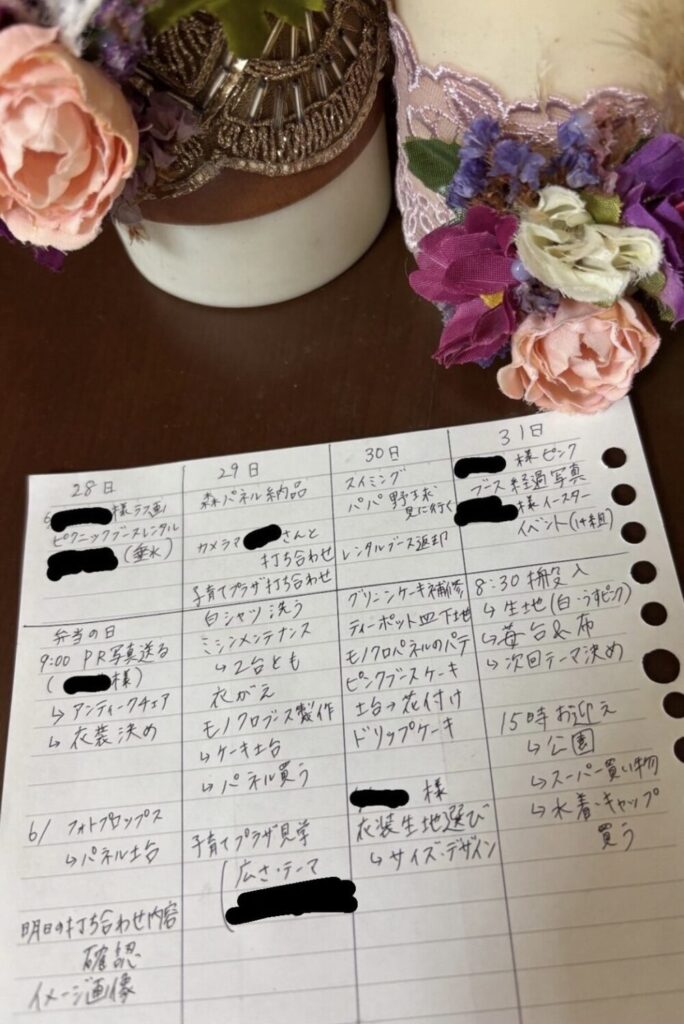 28日
様テラス画
ピクニックブースレンタル
(垂水)
弁当の日
9:00 PR写真送る
( 様)
↳アンティークチェア
↳衣装決め
6/ フォトプロップス
↳パネル土台
明日の打ち合わせ内容
確認
イメージ画像
29日
森パネル納品
カメラマ さんと
打ち合わせ
子育てプラザ打ち合わせ
白シャツ洗う
ミシンメンテナンス
↳2台とも
衣がえ
モノクロブース製作
↳ケーキ土台
↳パネル買う
子育てプラザ見学
(広さ・テーマ
30日
スイミング
パパ野球
見に行く
レンタルブース返却
グリーンケーキ補修
ティーポット皿下地
モノクロパネルのパテ
ピンクブースケーキ
土台→花付け
ドリップケーキ
様
衣装生地選び
↳サイズ・デザイン
31日
様ピンク
ブース経過写真
様イースター
イベント(1件組)
8:30 搬入
↳生地(白・うすピンク)
↳苺台&布
↳次回テーマ決め
15時お迎え
↳公園
↳スーパー買い物
↳水着・キャップ
買う